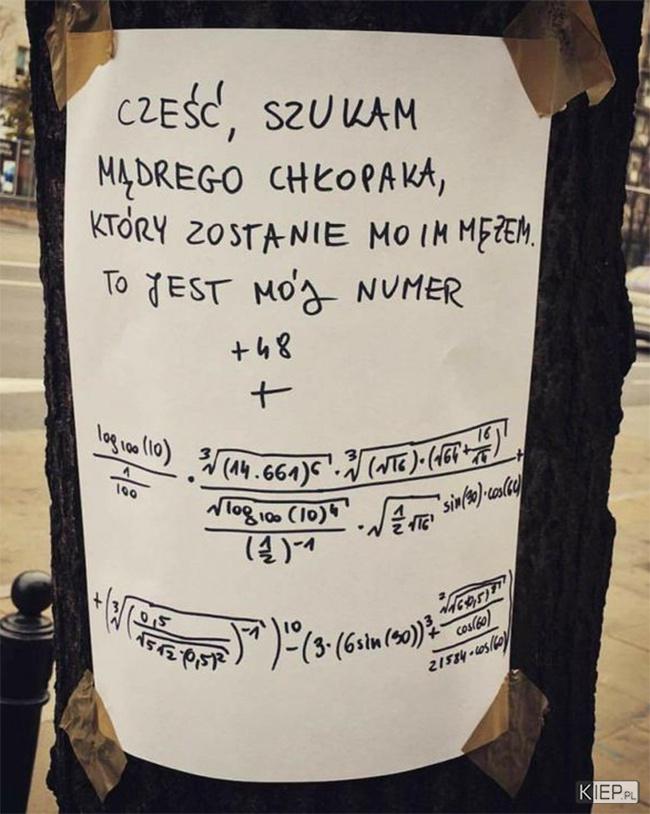 CZEŚĆ, SZUKAM
MĄDREGO CHŁOPAKA,
KTÓRY ZOSTANIE MOIM MĘŻEM.
TO JEST MÓJ NUMER
+48
+
log₁₀₀(10)/(1/100) · (∛(14.661)⁶ · ∛((√16)·(√64+16/√4)))/((√log₁₀₀(10)⁴)/((1/2)⁻¹) · √(1/2 √16) sin(90)·cos(60)) +
+(∛((0,5/(√512·(0,5)²))⁻¹))¹⁰-(3·(6sin(90))³+
cos(60)
21584·cos(60)
KIEP.PL